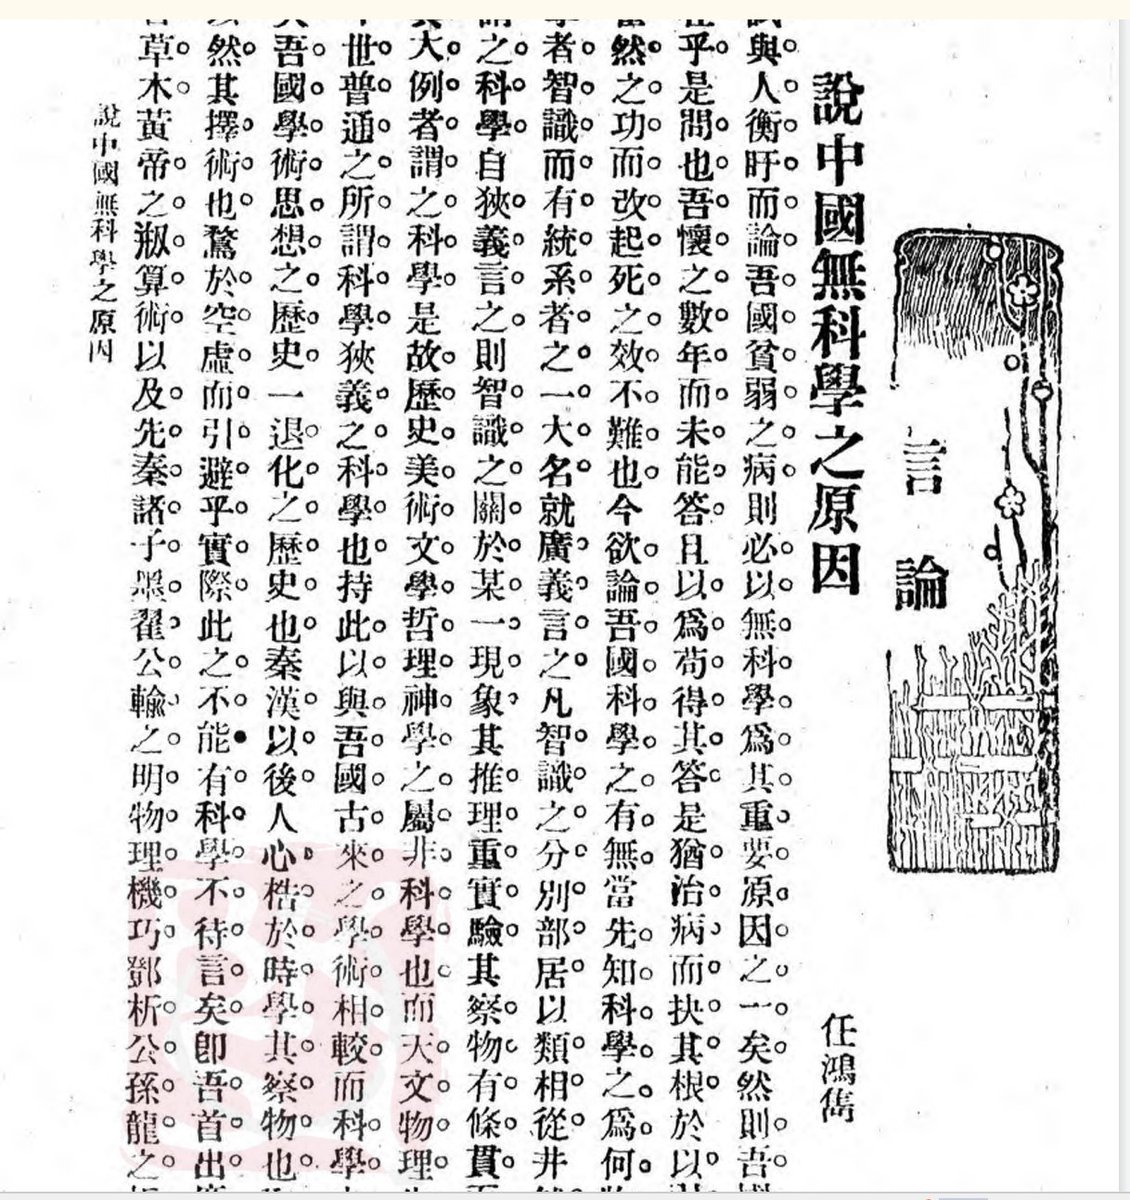 言論
說中國無科學之原因
任鴻雋
與人衡盱而論吾國貧弱之病則必以無科學爲其重要原因之一矣然則吾
乎是問也吾懷之數年而未能答且以爲苟得其答是猶治病而抉其根於以
然之功而改起死之效不難也今欲論吾國科學之有無當先知科學之爲何
者智識而有統系者之一大名就廣義言之凡智識之分別部居以類相從井
之科學自狹義言之則智識之關於某一現象其推理重實驗其察物有條貫
大例者謂之科學是故歷史美術文學哲理神學之屬非科學也而天文物理
世普通之所謂科學狹義之科學也持此以與吾國古來之學術相較而科學
吾國學術思想之歷史一退化之歷史也秦漢以後人心梏於時學其察物也
然其擇術也騖於空虛而引避乎實際此之不能有科學不待言矣卽吾首出
草木黃帝之剏算術以及先秦諸子墨翟公輸之明物理機巧鄧析公孫龍之
說中國無科學之原因